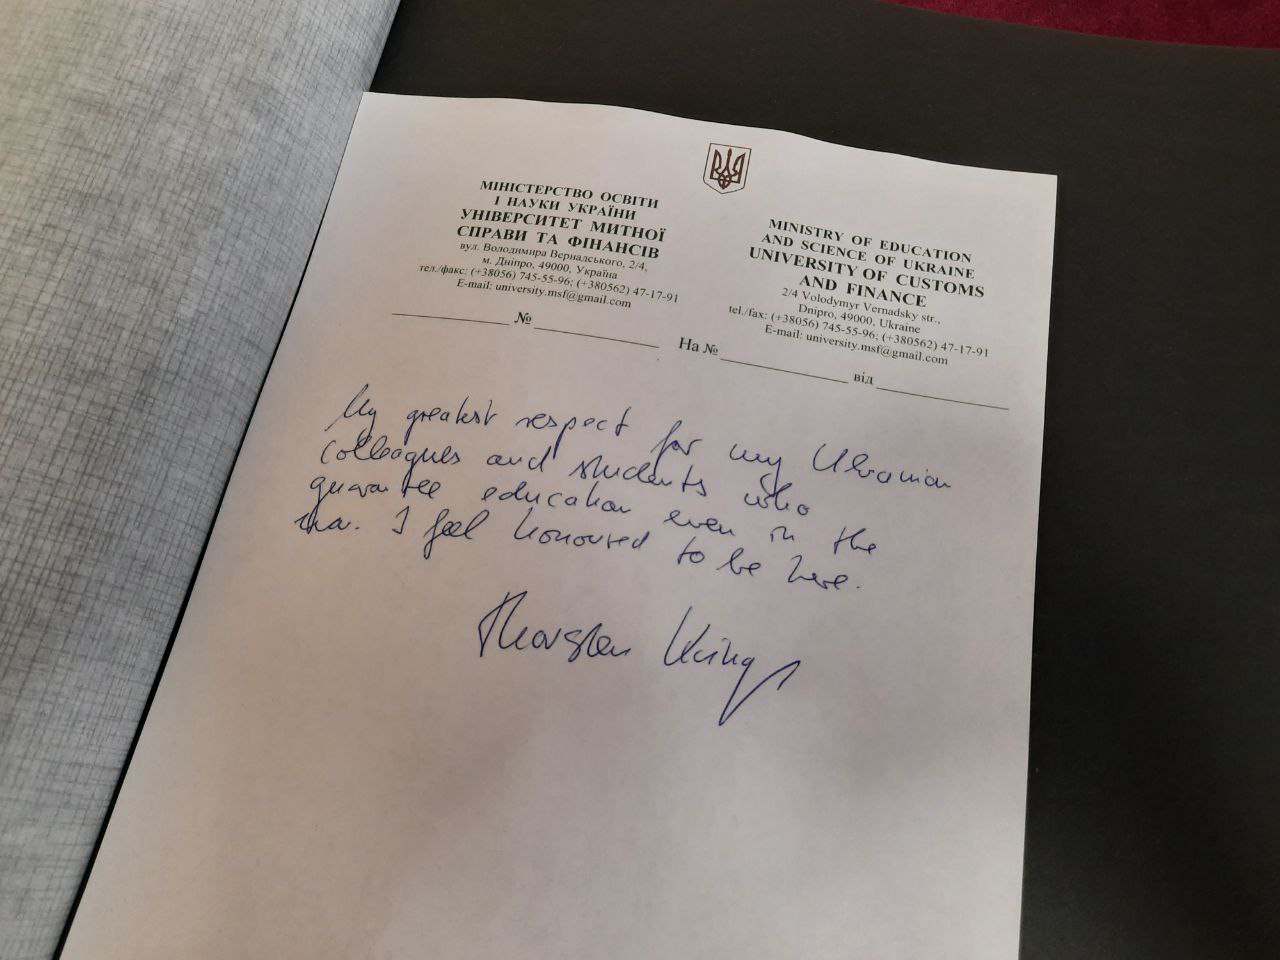 МІНІСТЕРСТВО ОСВІТИ
І НАУКИ УКРАЇНИ
УНІВЕРСИТЕТ МИТНОЇ
СПРАВИ ТА ФІНАНСІВ
вул. Володимира Вернадського, 2/4,
м. Дніпро, 49000, Україна
тел./факс: (+38056) 745-55-96; (+380562) 47-17-91
E-mail: university.msf@gmail.com
MINISTRY OF EDUCATION
AND SCIENCE OF UKRAINE
UNIVERSITY OF CUSTOMS
AND FINANCE
2/4 Volodymyr Vernadsky str.,
Dnipro, 49000, Ukraine
tel./fax: (+38056) 745-55-96; (+380562) 47-17-91
E-mail: university.msf@gmail.com
№
На № від
My greatest respect for my Ukrainian
colleagues and students who
guarantee education even in the
war. I feel honoured to be here.
Thorsten